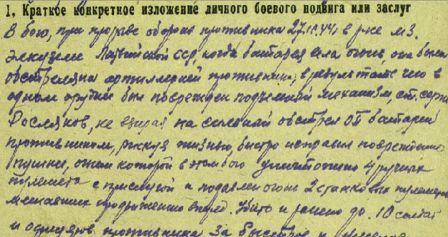 1. Краткое конкретное изложение личного боевого подвига или заслуг
В бою, при прорыве обороны противника 27.10.44 г. в р-не мз.
Латвийской ССР, когда батарея вела огонь, она была
обстреляна артиллерией противника, в результате чего в
одном орудии был поврежден подъемный механизм, ст. серж.
Росляков, не взирая на сильный обстрел ОП батареи
противником, рискуя жизнью, быстро исправил повреждение
пушки, огнем которой в этом бою уничтожено 4 ручных
пулемета с прислугой и подавлен огонь 2 станковых пулеметов
мешавших продвижению вперед. Убито и ранено до 10 солдат
и офицеров противника. За быстрое и